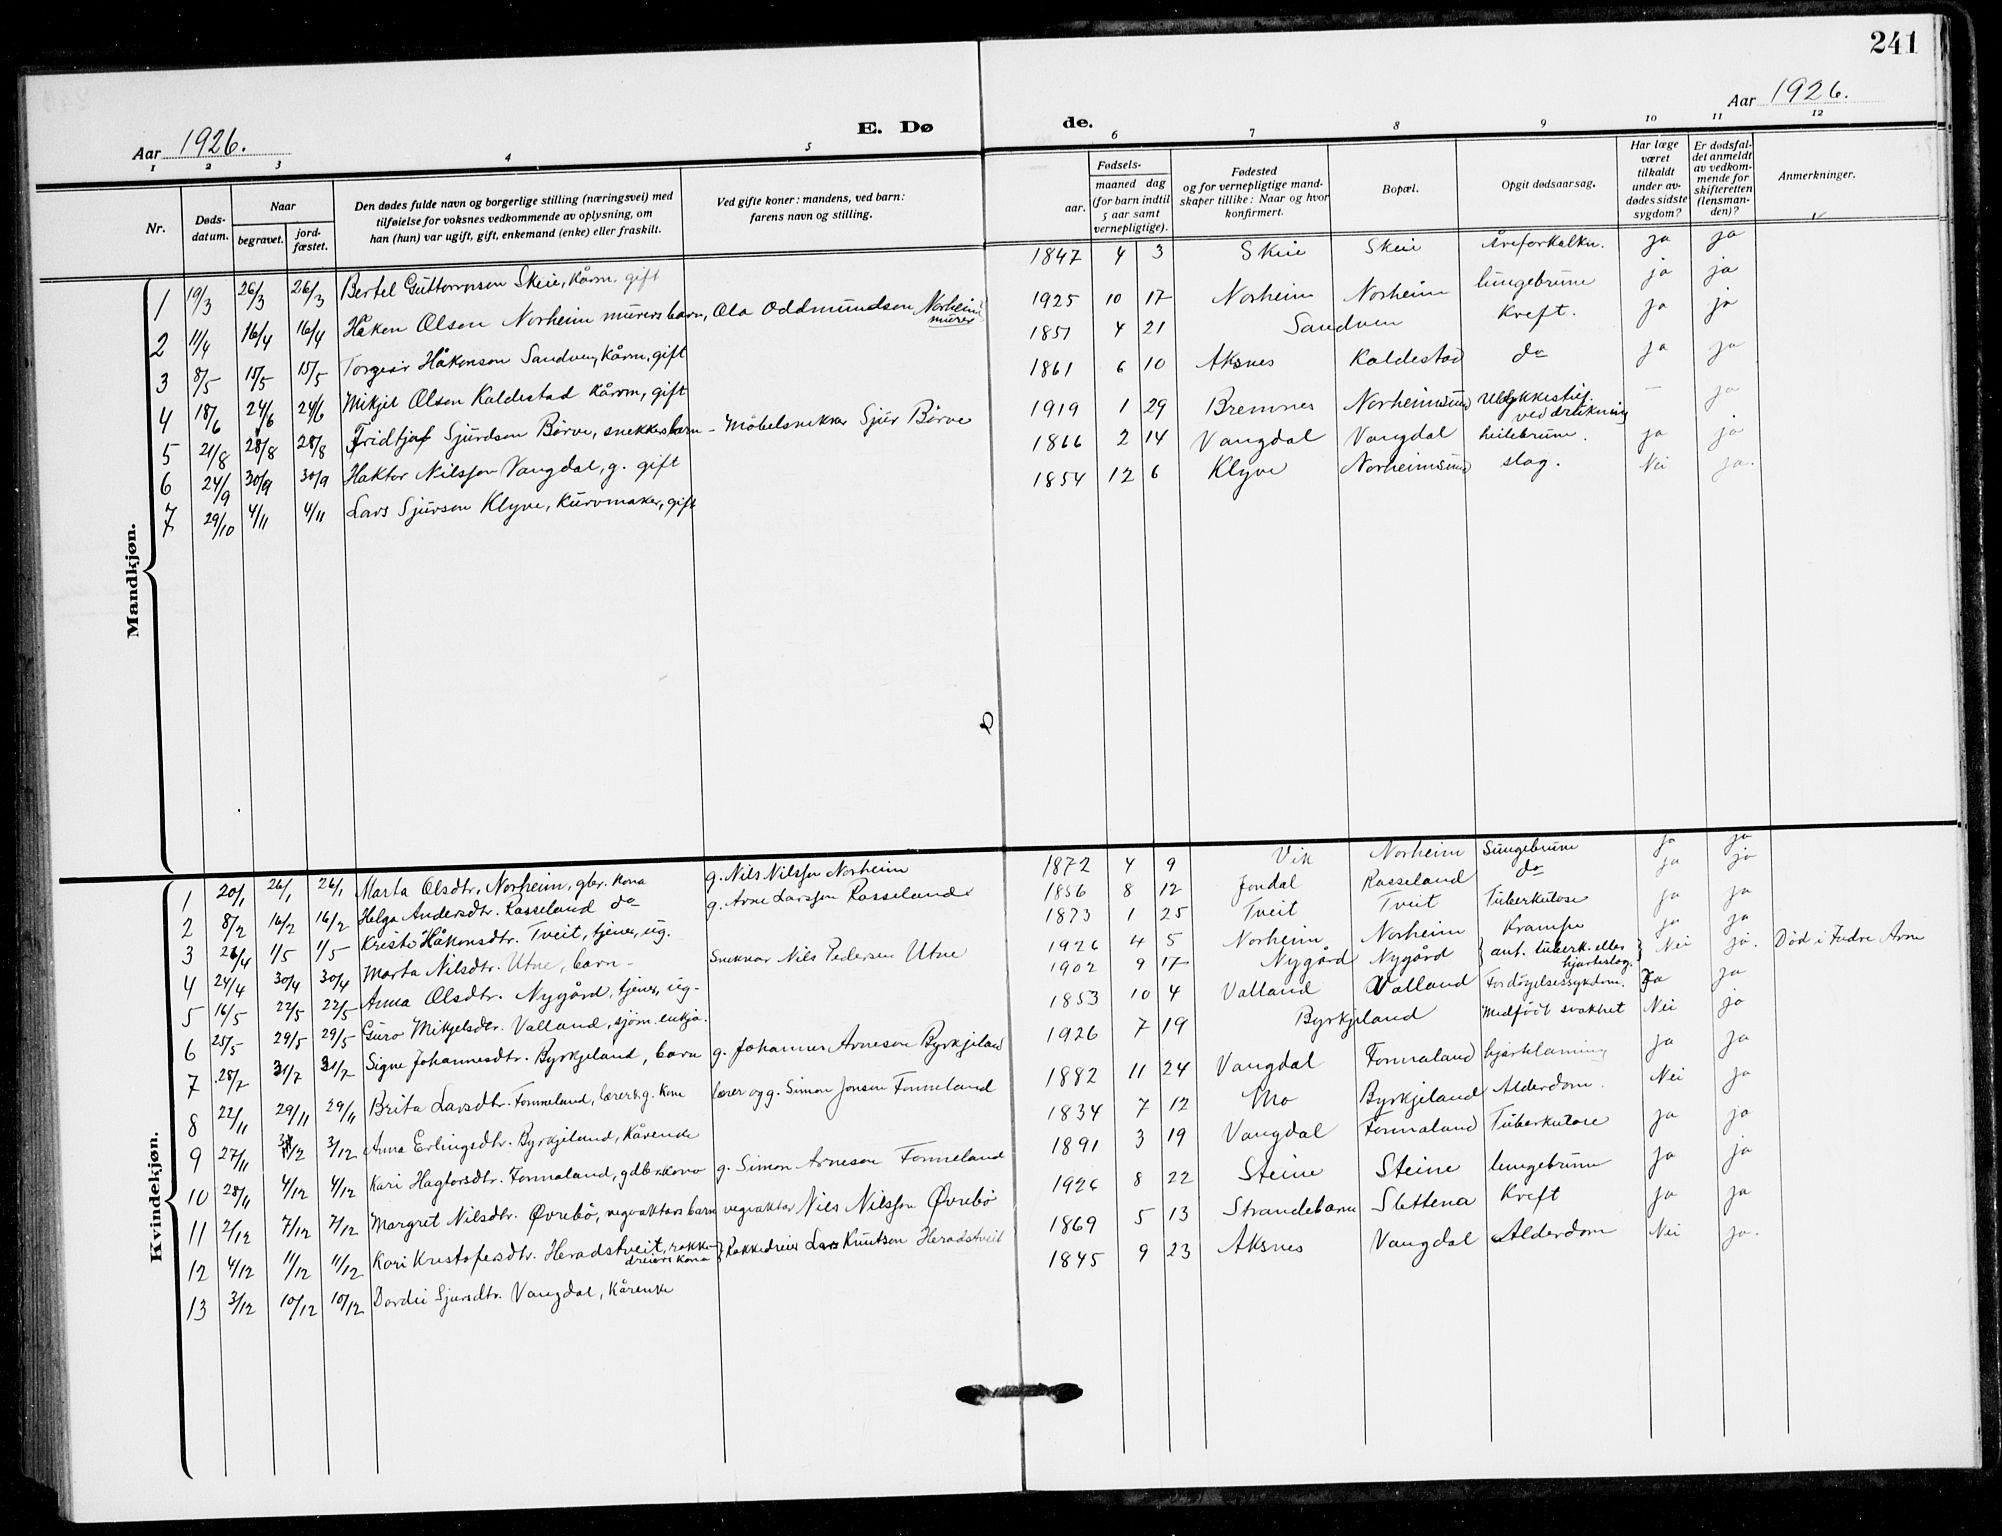 241
Aar 1926. E. Dø
de. Aar 1926.
1 2 3 4 5 6 7 8 9 10 11 12
Nr. Døds-datum. Naar begravet. jord-fæstet. Den dødes fulde navn og borgerlige stilling (næringsvei) med tilføielse for voksnes vedkommende av oplysning, om han (hun) var ugift, gift, enkemand (enke) eller fraskilt. Ved gifte koner: mandens, ved barn: farens navn og stilling. Fødsels- aar. maaned dag (for barn indtil 5 aar samt vernepligtige). Fødested og for vernepligtige mand-skaper tillike: Naar og hvor konfirmert. Bopæl. Opgit dødsaarsag. Har læge været tilkaldt under av-dødes sidste sygdom? Er dødsfal-det anmeldt av vedkom-mende for skifteretten (lensman-den)? Anmerkninger.
Mandkjøn.
1 19/3 26/3 26/3 Bertel Guttormson Skeie, kårm. gift 1847 4 3 Skeie Skeie Åreforkalkn. ja ja
2 11/4 16/4 16/4 Håkon Olson Norheim murers barn, Ola Oddmundson Norheim murer 1925 10 17 Norheim Norheim lungebrune ja ja
3 8/5 15/5 15/5 Torgeir Håkonson Sandven, kårm, gift 1851 4 21 Sandven Kreft. ja ja
4 18/6 24/6 24/6 Mikjel Olson Kaldestad kårm, gift 1861 6 10 Aksnes Kaldestad do ja ja
5 21/8 28/8 28/8 Fridtjof Sjurdson Børve, snekkers barn - Möbelsnekkar Sjur Börve 1919 1 29 Bremnes Norheimsund Ulykkestif. ved drukning — ja
6 24/9 30/9 30/9 Haktor Nilsson Vangdal, g. gift 1866 2 14 Vangdal Vangdal heilebrune. ja ja
7 29/10 4/11 4/11 Lars Sjurson Klyve, kurvmaker, gift 1854 12 6 Klyve Norheimsund slag. Nei ja.
Kvindekjøn.
1 20/1 26/1 26/1 Marta Olsdtr. Norheim, gbr. kona g. Nils Nilsson Norheim 1872 4 9 Vik Norheim Lungebrune ja ja
2 8/2 16/2 16/2 Helga Andersdtr. Rasseland do g. Arne Larsson Rasseland 1856 8 12 Jondal Rasseland do ja ja
3 26/4 1/5 1/5 Kristi Håkonsdtr. Tveit, tjener, ug. 1873 1 25 Tveit Tveit Tuberkulose ja ja
4 24/4 30/4 30/4 Marta Nilsdtr. Utne, barn - Snekkar Nils Pedersen Utne 1926 4 5 Norheim Norheim Krampe ja ja
5 16/5 22/5 22/5 Anna Olsdtr. Nygård, tjener, ug- 1902 9 17 Nygård Nygård ant. tuberk. eller hjarteslag. Nei ja. Død i Indre Arne
6 25/5 29/5 29/5 Guro Mikjelsdtr. Valland, sjøm. enkja. 1853 10 4 Valland Valland Fordøyelsessykdom. Ja ja
7 28/7 31/7 31/7 Signe Johannesdtr. Byrkjeland, barn g. Johannes Arneson Byrkjeland 1926 7 19 Byrkjeland Medfödt svakhet Nei ja
8 22/11 29/11 29/11 Brita Larsdtr. Fonneland, lærer & g. kone lærer og g. Simon Jonson Fonneland 1882 11 24 Vangdal Fonnaland hjartelaming ja ja
9 27/11 3/12 3/12 Anna Erlingsdtr. Byrkjeland, Kårenke 1834 7 12 Mo Byrkjeland Alderdom. Nei ja
10 28/11 4/12 4/12 Kari Hagtorsdtr. Fonnaland, gdbr. kona g. Simon Arneson Fonneland 1891 3 19 Vangdal Fonnaland Tuberkulose ja ja
11 2/12 7/12 7/12 Margret Nilsdtr. Øvrebö, vegvaktars barn vegvaktar Nils Nilsson Øvrebö 1926 8 22 Steine Steine lungebrune ja ja
12 4/12 11/12 11/12 Kari Kristofersdtr. Heradstveit, rokkedreiers kona Rokkedreier Lars Knutson Heradstveit 1869 5 13 Strandebarm Slettena Kreft ja ja
13 3/12 10/12 10/12 Dordei Sjursdtr. Vangdal, Kårenke 1845 9 23 Aksnes Vangdal Alderdom Nei ja.